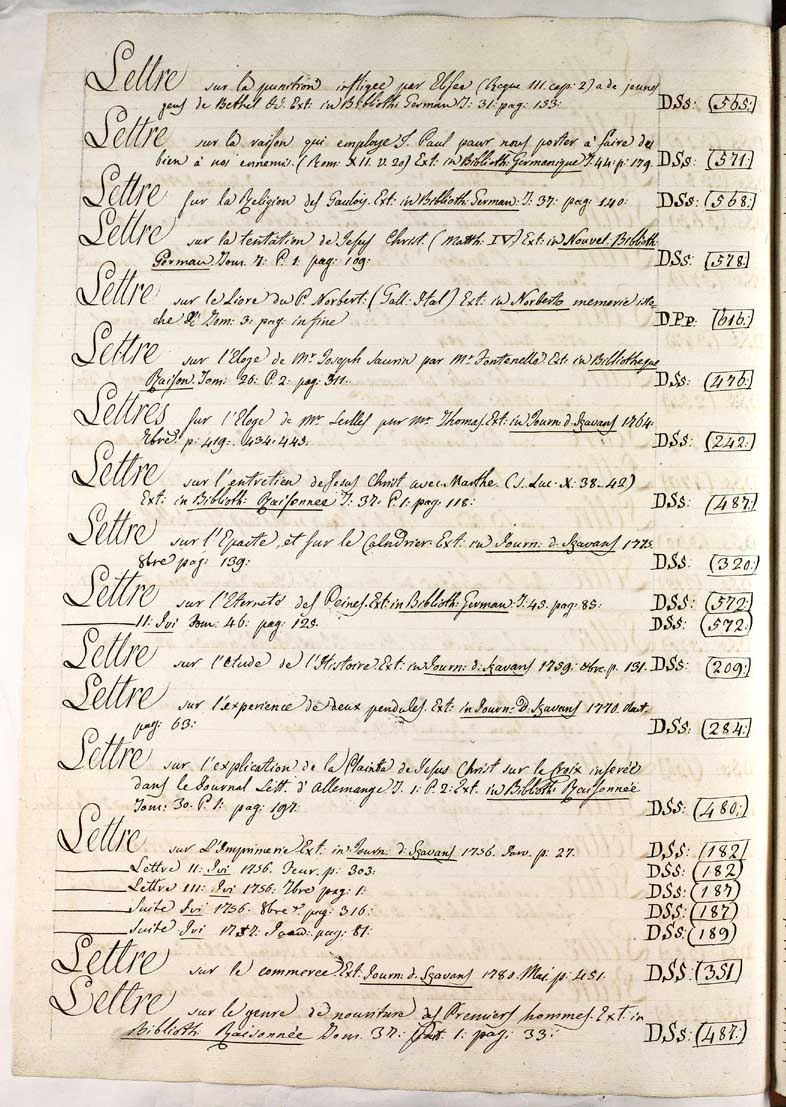 Lettre sur la punition infligee par Elisee (Regue III. cap: 2) a de jeunes
gens de Bethel &c. Ext: in Biblioth: German: T: 31: pag: 153: DSs: (565:)
Lettre sur la raison qui employe S. Paul pour nous porter à faire du
bien à nos ennemis. (Rom: XII. v. 20) Ext: in Biblioth: Germanique T: 44: p: 179. DSs: (571:)
Lettre sur la Religion des Gaulois. Ext: in Biblioth: German: T: 37: pag: 140: DSs: (568:)
Lettre sur la tentation de Jesus Christ. (Matth: IV.) Ext: in Nouvel. Biblioth:
German Tom: 7: P. 1. pag: 109: DSs: (578:)
Lettre sur le Livre du P. Norbert: (Gall: Ital) Ext: in Norberto memorie isto
che &c Tom: 3: pag: in fine DPp: (616:)
Lettre sur l'Eloge de Mr. Joseph Saurin par Mr. Fontenelle. Ext: in Bibliotheque
Raison. Tom: 26: P. 2: pag: 311. DSs: (476:)
Lettres sur l'Eloge de Mr. par Mr. Thomas. Ext: in Journ: d: Sçavans 1764.
7bre. p: 419. 434. 443. DSs: (242:)
Lettre sur l'entretien de Jesus Christ avec Marthe. (S. Luc. X. 38-42)
Ext: in Biblioth: Raisonnée T: 37. P. 1: pag: 118: DSs: (487:)
Lettre sur l'Epacte, et sur le Calendrier. Ext: in Journ: d: Sçavans 1775.
8bre pag: 139: DSs: (320:)
Lettre sur l'Eterneté des Peines. Ext: in Biblioth: German: T: 45. pag: 85: DSs: (572:)
——— 11: Ivi Tom: 46: pag: 125. DSs: (572:)
Lettre sur l'etude de l'Histoire. Ext: in Journ: d: Sçavans 1759. p. 131. DSs: (209:)
Lettre sur l'experience de deux pendules. Ext: in Journ: D: Sçavans 1770.
pag: 63: DSs: (284:)
Lettre sur l'explication de la Plainte de Jesus Christ sur le Croix inserée
dans le Journal Litt. d'Allemange T. 1: P. 2: Ext. in Biblioth: Raisonnée
Tom: 30. P. 1: pag: 197. DSs: (480:)
Lettre sur L'Imprimerie Ext: in Journ: d: Sçavans 1756. Janv. p: 27. DSS: (182)
——— Lettre 11: Ivi 1756. Feur. p: 303: DSs: (182)
——— Lettre 111: Ivi 1756: 7bre pag: 1: DSs: (187)
——— Suite Ivi 1756. 8bre. pag: 316: DSs: (187)
——— Suite Ivi 1757: pag: 81: DSs: (189)
Lettre sur le commerce. Ext: Journ: d: Sçavans 1780. Mai. p: 451. DSS: (351)
Lettre sur le genre de nouriture des Premiers hommes. Ext: in
Biblioth: Raisonnée Tom: 37: Part. 1: pag: 33: DSs: (487:)